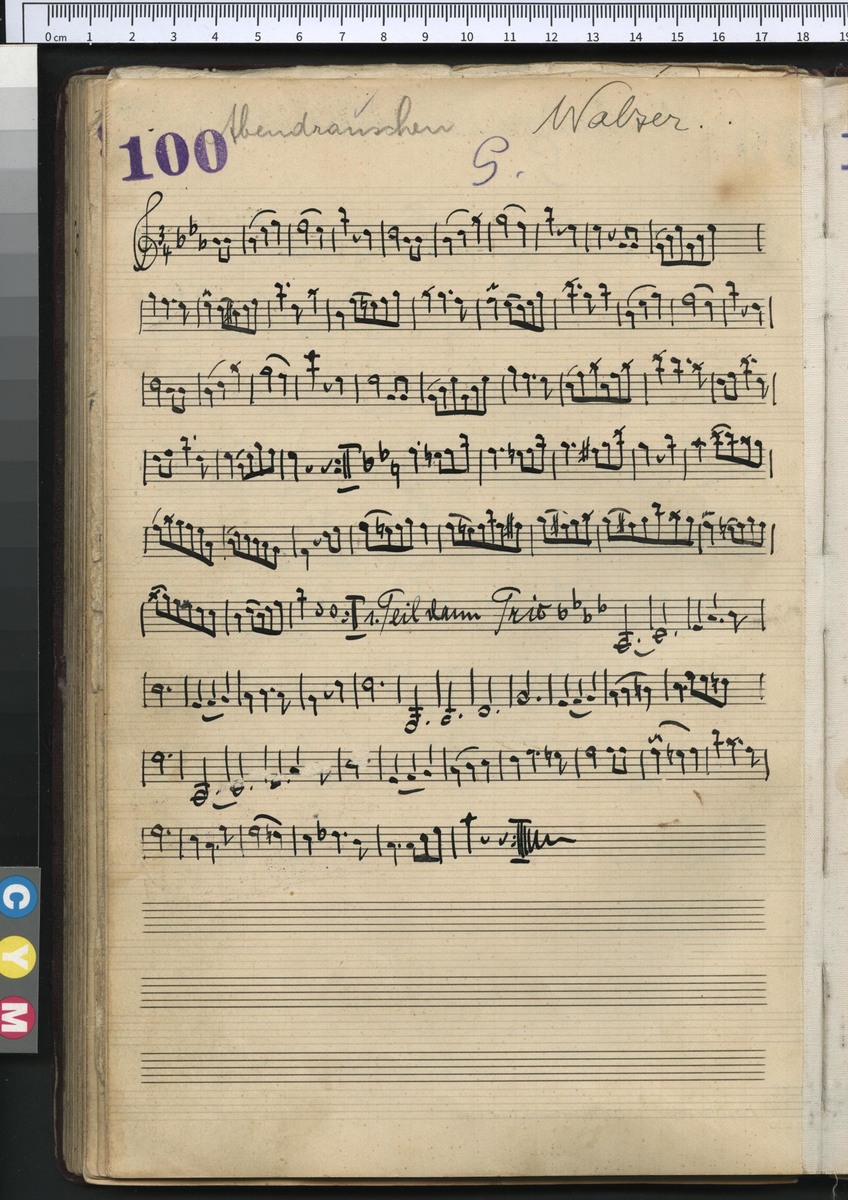 0 cm 1 2 3 4 5 6 7 8 9 10 11 12 13 14 15 16 17 18 19
100 Abendrauschen Walzer.
G.
3
4
1. Teil dann Trio
C
Y
M